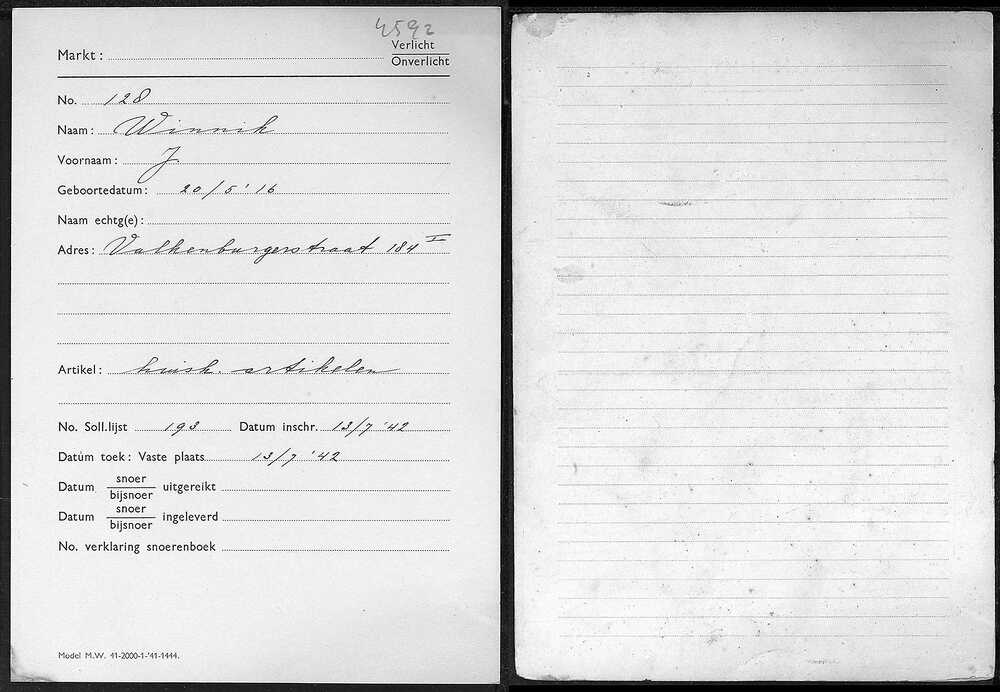 4592
Verlicht
Markt: Onverlicht
No. 128
Naam: Winnik
Voornaam: J
Geboortedatum: 20/5 '16
Naam echtg(e):
Adres: Valkenburgerstraat 184 I
Artikel: huish. artikelen
No. Soll.lijst 193 Datum inschr. 13/7 '42
Datum toek: Vaste plaats 13/7 '42
Datum snoer uitgereikt
bijsnoer
Datum snoer ingeleverd
bijsnoer
No. verklaring snoerenboek
Model M.W. 41-2000-1-'41-1444.